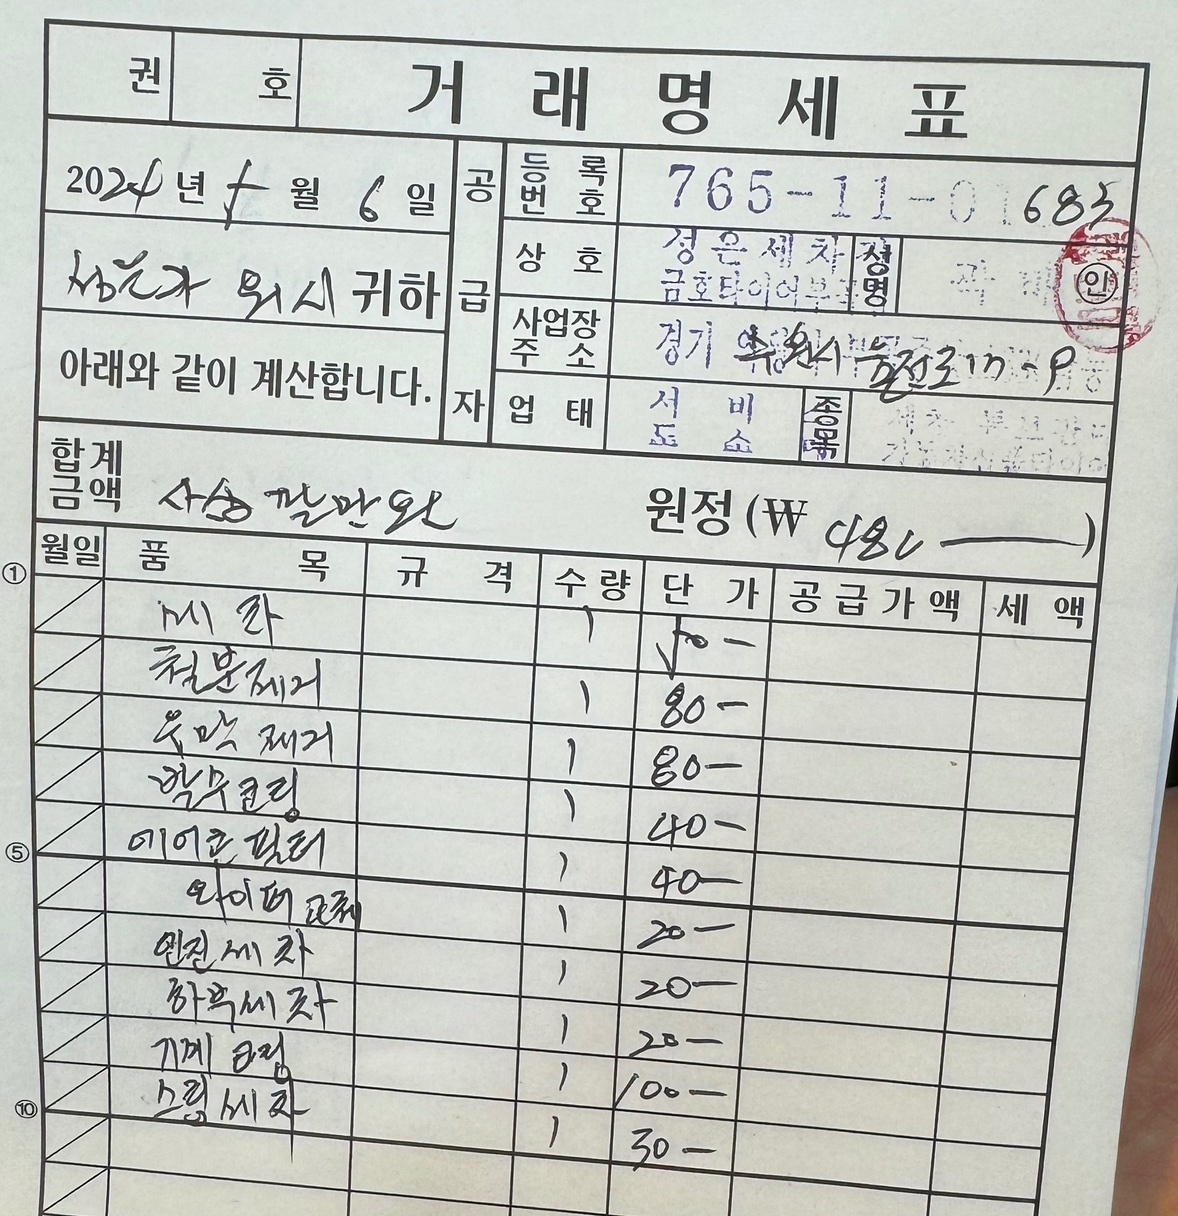 권 호 거래명세표
2024년 5월 6일
공급자
등록번호 765-11-01683
귀하
상호 성은세차 금호타이어 성명 인
아래와 같이 계산합니다.
사업장주소 경기 수원시
업태 서비 도소 종목
합계금액 사십팔만원 원정(₩ 480 —)
월일 품목 규격 수량 단가 공급가액 세액
① 세차 1 50-
철분제거 1 80-
유막제거 1 80-
발수코팅 1 40-
⑤ 에어콘필터 1 40-
와이퍼 교체 1 20-
엔진세차 1 20-
하부세차 1 20-
기계 1 100-
⑩ 스팀세차 1 30-